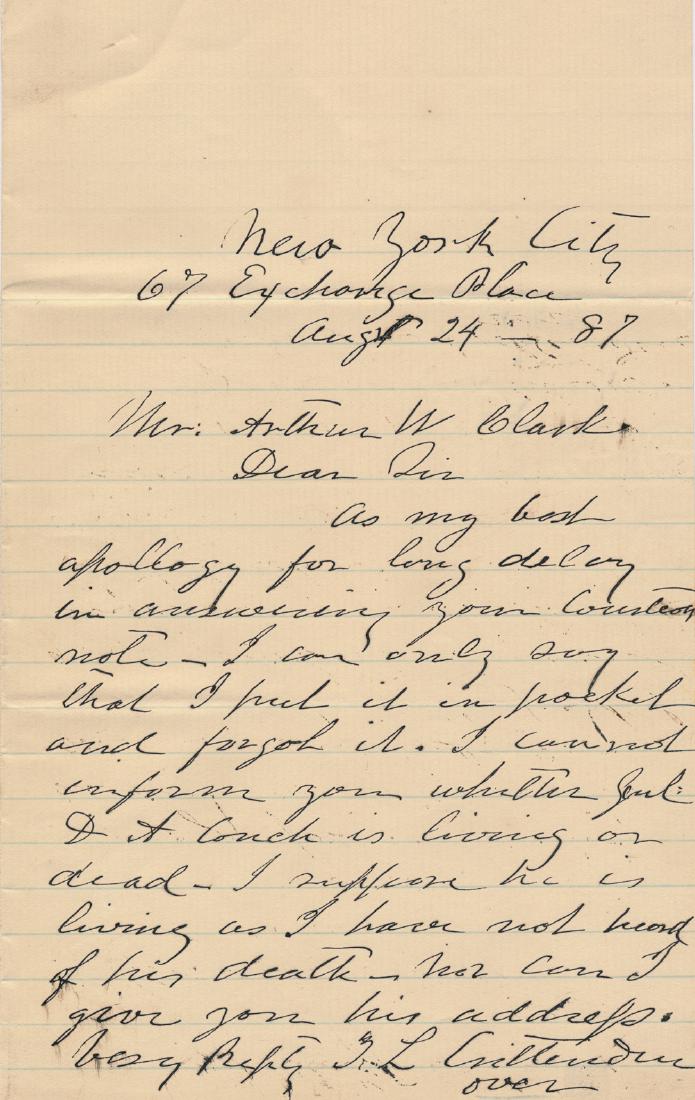 New York City
67 Exchange Place
Augst 24 — 87
Mr. Arthur W Clark.
Dear Sir
As my best
apollogy for long delay
in answering your courteous
note – I can only say
that I put it in pocket
and forgot it. I cannot
inform you whether Genl:
D N Couch is living or
dead – I suppose he is
living as I have not heard
of his death – nor can I
give you his address.
Very Respty T. L Crittenden
over